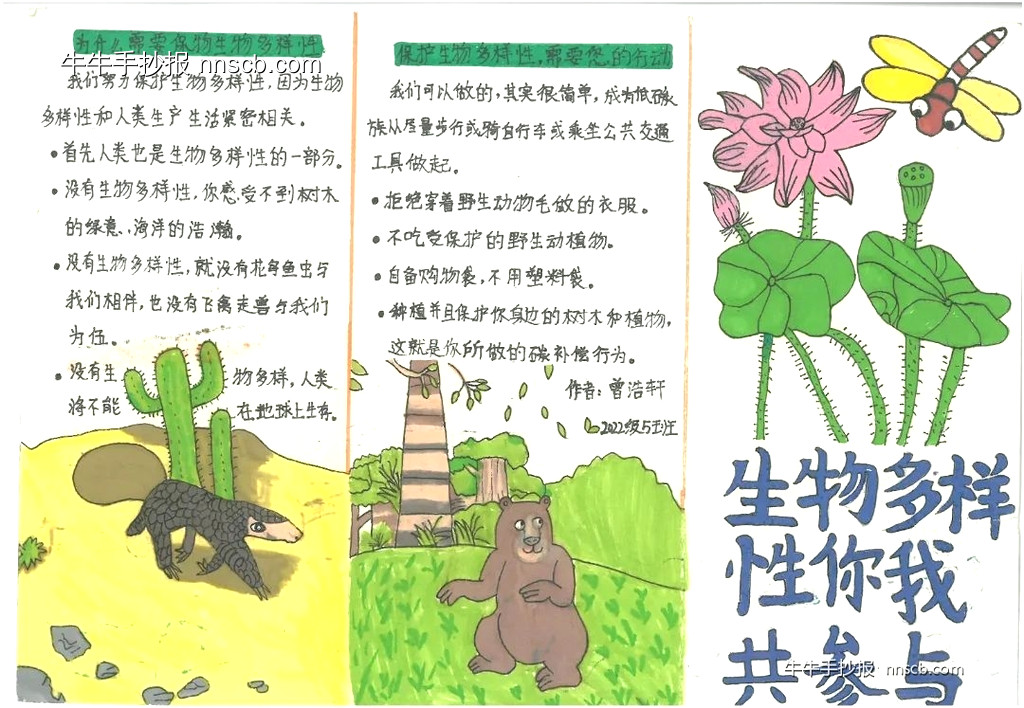 为什么需要保物生物多样性
牛牛手抄报 nnscb.com
我们努力保护生物多样性,因为生物
多样性和人类生产生活紧密相关。
•首先人类也是生物多样性的一部分。
•没有生物多样性,你感受不到树木
的绿意,海洋的浩瀚。
•没有生物多样性,就没有花鸟鱼虫与
我们相伴,也没有飞禽走兽与我们
为伍。
•没有生物多样,人类
将不能在地球上生存。
保护生物多样性,需要您的行动
我们可以做的,其实很简单,成为低碳
族从尽量步行或骑自行车或乘坐公共交通
工具做起。
•拒绝穿着野生动物毛做的衣服。
•不吃受保护的野生动植物。
•自备购物袋,不用塑料袋。
•种植并且保护你身边的树木和植物,
这就是你所做的碳补偿行为。
作者:曾浩轩
2022级5班
生物多样
性你我
共参与
牛牛手抄报 nnscb.com